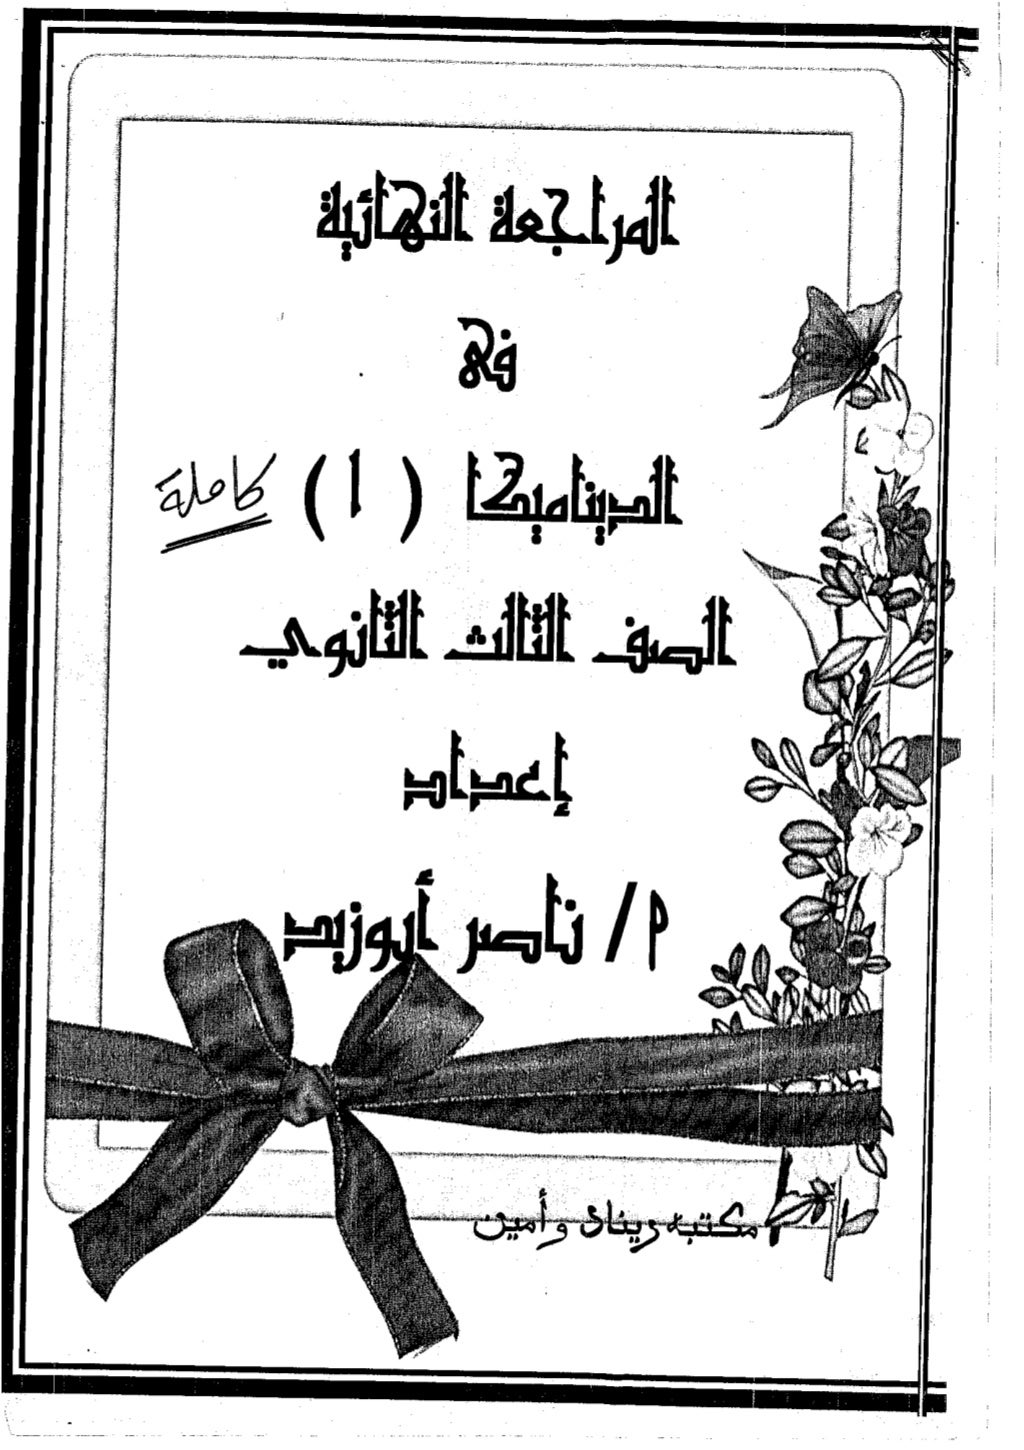 المراجعة النهائية
فى
الديناميكا ( ١ ) كاملة
الصف الثالث الثانوي
إعداد
م/ ناصر أبوزيد
مكتبه ريناد وأمين